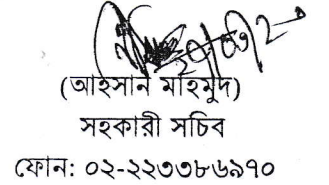 (আহসান মাহমুদ)
সহকারী সচিব
ফোন: ০২-২২৩৩৮৬৯৭০